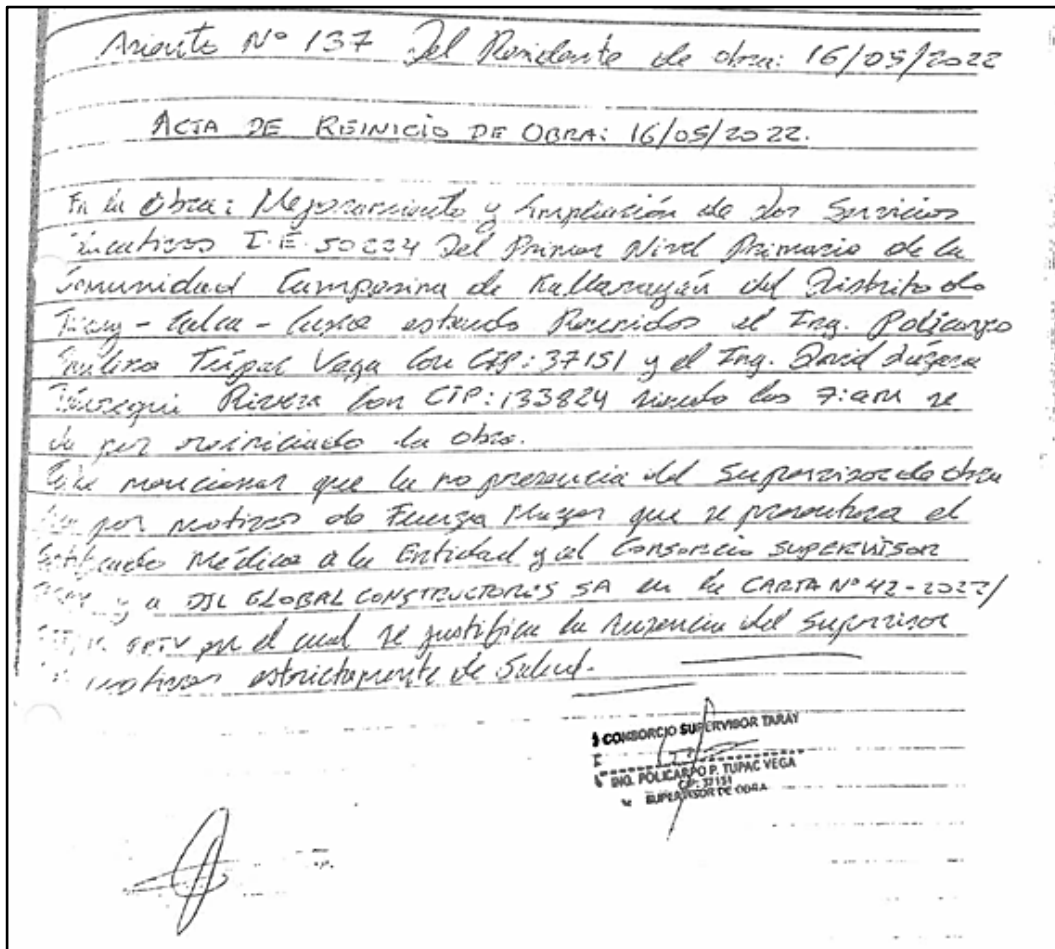 Asiento Nº 137 Del Residente de obra: 16/05/2022
ACTA DE REINICIO DE OBRA: 16/05/2022.
En la Obra: Mejoramiento y Ampliación de los Servicios
I.E. 50224 Del Primer Nivel Primario de la
Comunidad Campesina de del Distrito de
Taray - Calca - Cusco estando Reunidos el Ing. Policarpo
Tupac Vega Con CIP: 37151 y el Ing. David
Rivera Con CIP: 133824 siendo las 7: am se
da por reiniciado la obra.
mencionar que la no presencia del Supervisor de obra
por motivos de Fuerza Mayor que se presentara el
Médico a la Entidad y al Consorcio SUPERVISOR
y a DJL GLOBAL CONSTRUCTORES SA en la CARTA Nº 42-2022/
por el cual se justifica la Ausencia del Supervisor
motivos estrictamente de Salud.
CONSORCIO SUPERVISOR TARAY
ING. POLICARPO P. TUPAC VEGA
CIP: 37151
SUPERVISOR DE OBRA